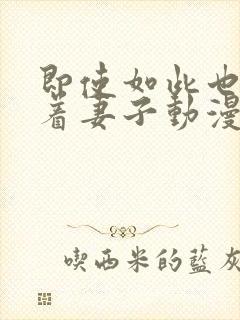 即使如此也
着妻子動漫
喫西米的藍灰